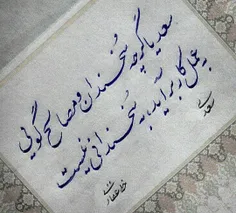 سعدیا گرچه سخندان و مصالح گویی
به عمل کار برآید، به سخندانی نیست
سعدی